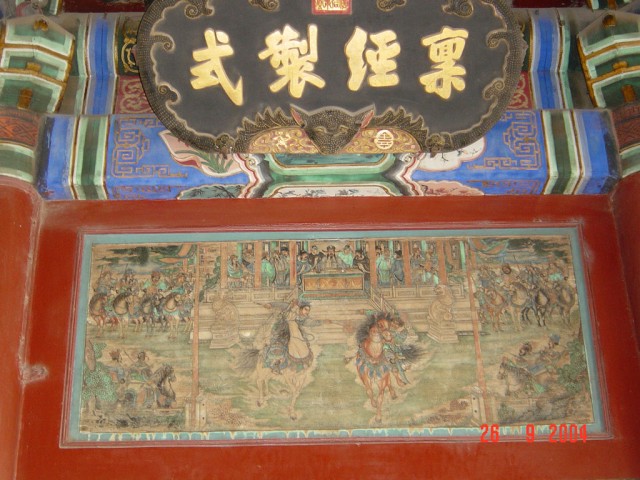 稟經製式
26 9 2004